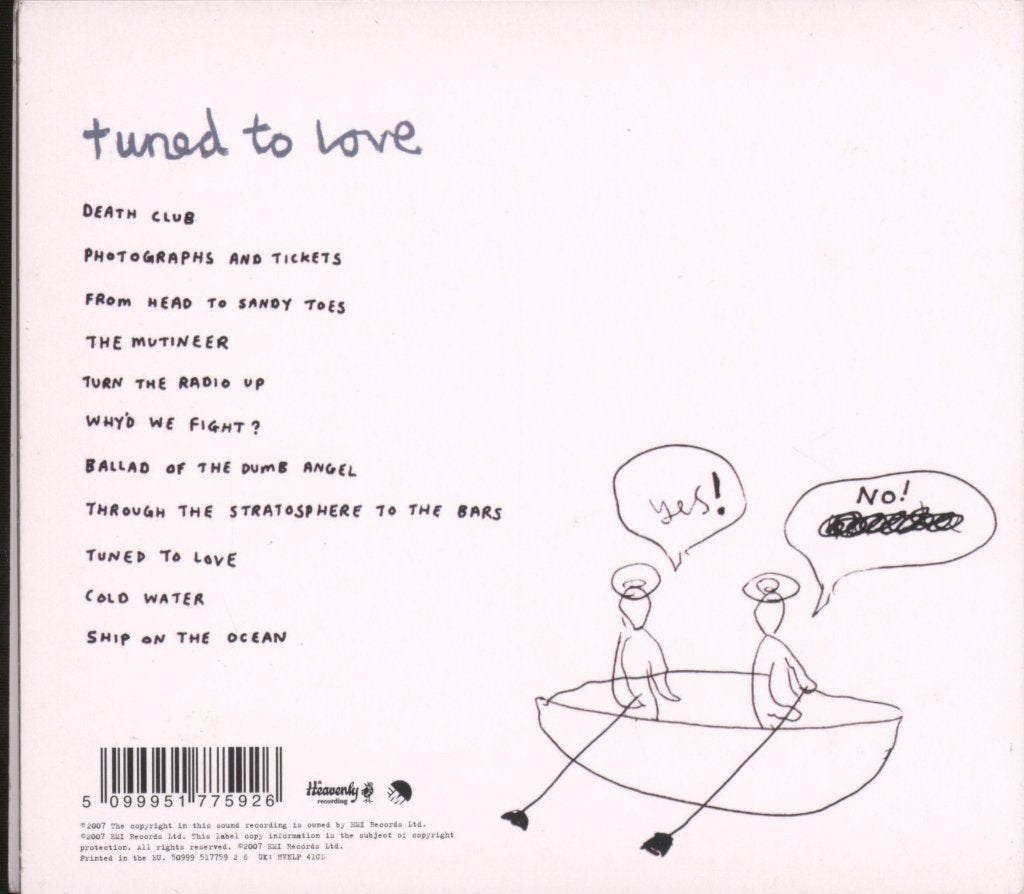 tuned to love
DEATH CLUB
PHOTOGRAPHS AND TICKETS
FROM HEAD TO SANDY TOES
THE MUTINEER
TURN THE RADIO UP
WHY'D WE FIGHT?
BALLAD OF THE DUMB ANGEL
THROUGH THE STRATOSPHERE TO THE BARS
TUNED TO LOVE
COLD WATER
SHIP ON THE OCEAN
yes!
NO!
5 099951 775926
Heavenly
recording
©2007 The copyright in this sound recording is owned by EMI Records Ltd.
©2007 EMI Records Ltd. This label copy information is the subject of copyright
protection. All rights reserved. ©2007 EMI Records Ltd.
Printed in the EU. 50999 517759 2 6 UK: HVNLP 61CD